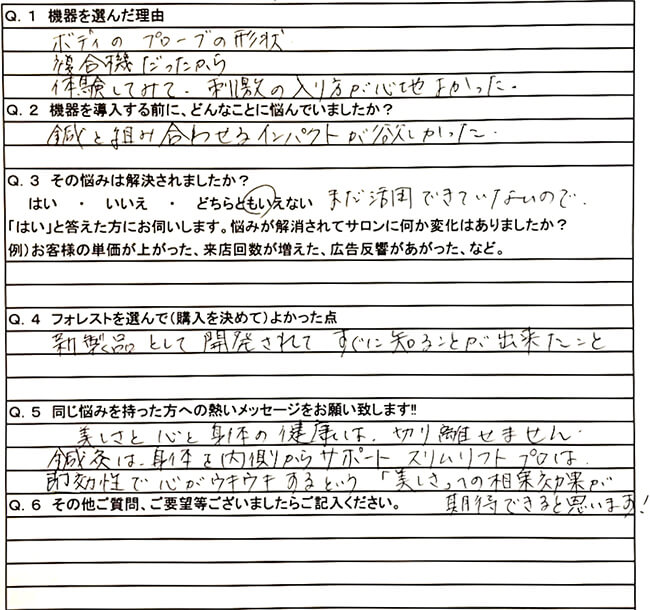 Q. 1 機器を選んだ理由
ボディの プローブの形状
複合機だったから
体験してみて、刺激の入り方が心地よかった。
Q. 2 機器を導入する前に、どんなことに悩んでいましたか?
鍼と組み合わせるインパクトが欲しかった。
Q. 3 その悩みは解決されましたか?
はい ・ いいえ ・ どちらともいえない まだ活用できていないので、
「はい」と答えた方にお伺いします。悩みが解消されてサロンに何か変化はありましたか?
例)お客様の単価が上がった、来店回数が増えた、広告反響があがった、など。
Q. 4 フォレストを選んで(購入を決めて)よかった点
新製品として開発されて すぐに知ることが出来たこと
Q. 5 同じ悩みを持った方への熱いメッセージをお願い致します!!
美しさと心と身体の健康は、切り離せません。
鍼灸は、身体を内側からサポート スリムリフトプロは、
即効性で心がウキウキするという 「美しさ」への相乗効果が
期待できると思います!
Q. 6 その他ご質問、ご要望等ございましたらご記入ください。